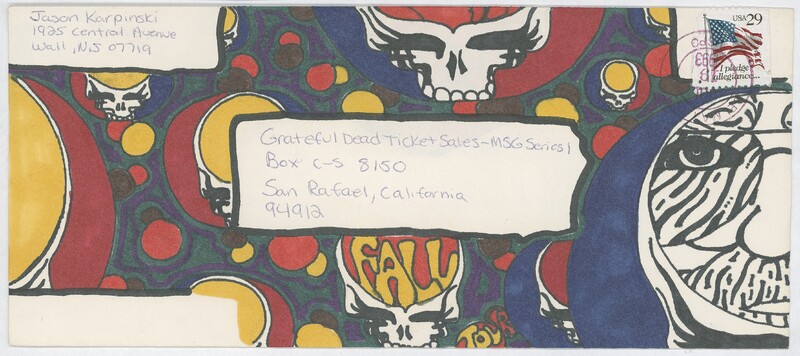 Jason Karpinski
1925 Central Avenue
Wall, NJ 07719
USA 29
I pledge
allegiance...
Grateful Dead Ticket Sales-MSG Series 1
Box C-S 8150
San Rafael, California
94912
FALL
TOUR